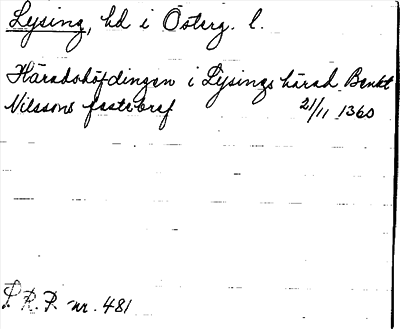 Lysing, hd i Österg. l.
Häradshöfdingen i Lysings härad Benkt
Nilssons fastebref 21/11 1360
P. R. P. nr. 481